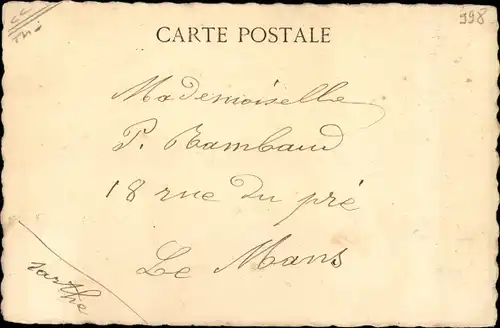 CARTE POSTALE
998
Mademoiselle
P. Rambaud
18 rue du pré
Le Mans
Sarthe